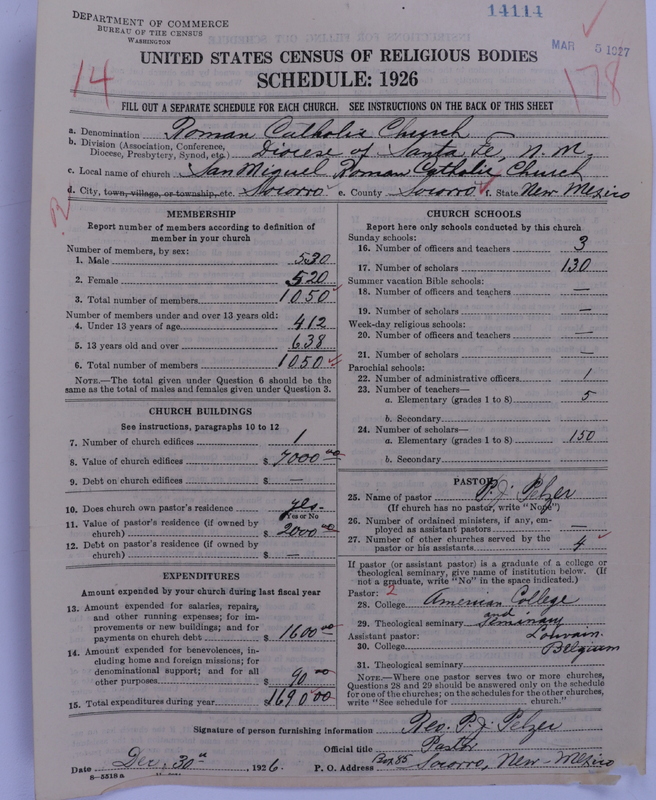 DEPARTMENT OF COMMERCE
BUREAU OF THE CENSUS
WASHINGTON
14114
MAR 5 1927
UNITED STATES CENSUS OF RELIGIOUS BODIES
SCHEDULE: 1926
14
178
FILL OUT A SEPARATE SCHEDULE FOR EACH CHURCH. SEE INSTRUCTIONS ON THE BACK OF THIS SHEET
a. Denomination Roman Catholic Church
b. Division (Association, Conference, Diocese, Presbytery, Synod, etc.) Diocese of Santa Fe, N. M.
c. Local name of church San Miguel Roman Catholic Church
d. City, town, village, or township, etc. Socorro e. County Socorro f. State New Mexico
MEMBERSHIP
Report number of members according to definition of
member in your church
Number of members, by sex:
1. Male 530
2. Female 520
3. Total number of members 1050
Number of members under and over 13 years old:
4. Under 13 years of age 412
5. 13 years old and over 638
6. Total number of members 1050
NOTE.—The total given under Question 6 should be the
same as the total of males and females given under Question 3.
CHURCH BUILDINGS
See instructions, paragraphs 10 to 12
7. Number of church edifices 1
8. Value of church edifices $ 7000 00
9. Debt on church edifices $ —
10. Does church own pastor's residence yes.
Yes or No
11. Value of pastor's residence (if owned by
church) $ 2000 00
12. Debt on pastor's residence (if owned by
church) $ —
EXPENDITURES
Amount expended by your church during last fiscal year
13. Amount expended for salaries, repairs,
and other running expenses; for im-
provements or new buildings; and for
payments on church debt $ 1600 00
14. Amount expended for benevolences, in-
cluding home and foreign missions; for
denominational support; and for all
other purposes $ 90 00
15. Total expenditures during year $ 1690 00
CHURCH SCHOOLS
Report here only schools conducted by this church
Sunday schools:
16. Number of officers and teachers 3
17. Number of scholars 130
Summer vacation Bible schools:
18. Number of officers and teachers —
19. Number of scholars —
Week-day religious schools:
20. Number of officers and teachers —
21. Number of scholars —
Parochial schools:
22. Number of administrative officers 1
23. Number of teachers—
a. Elementary (grades 1 to 8) 5
b. Secondary
24. Number of scholars—
a. Elementary (grades 1 to 8) 150
b. Secondary
PASTOR
25. Name of pastor P. J. Pelzer
(If church has no pastor, write "None")
26. Number of ordained ministers, if any, em-
ployed as assistant pastors —
27. Number of other churches served by the
pastor or his assistants 4
If pastor (or assistant pastor) is a graduate of a college or
theological seminary, give name of institution below. (If
not a graduate, write "No" in the space indicated.)
Pastor: 2
28. College American College
and
29. Theological seminary Seminary
Assistant pastor: Louvain.
30. College Belgium
31. Theological seminary
NOTE.—Where one pastor serves two or more churches,
Questions 28 and 29 should be answered only on the schedule
for one of the churches; on the schedules for the other churches,
write "See schedule for church."
Signature of person furnishing information Rev. P. J. Pelzer
Official title Pastor
Date Dec. 30th, 1926. P. O. Address Box 85 Socorro, New-Mexico
8—5518 a